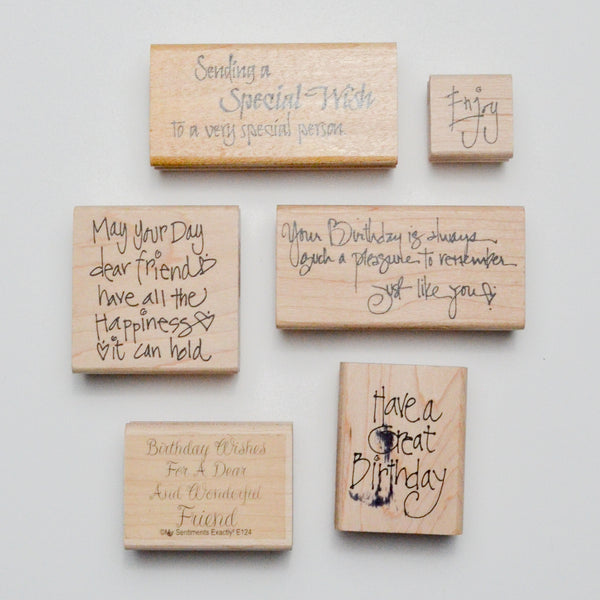 Sending a
Special Wish
to a very special person
Enjoy
May your Day
dear friend
have all the
Happiness
it can hold
Your Birthday is always
such a pleasure to remember
just like you
Birthday Wishes
For A Dear
And Wonderful
Friend
©My Sentiments Exactly! E124
Have a
Great
Birthday